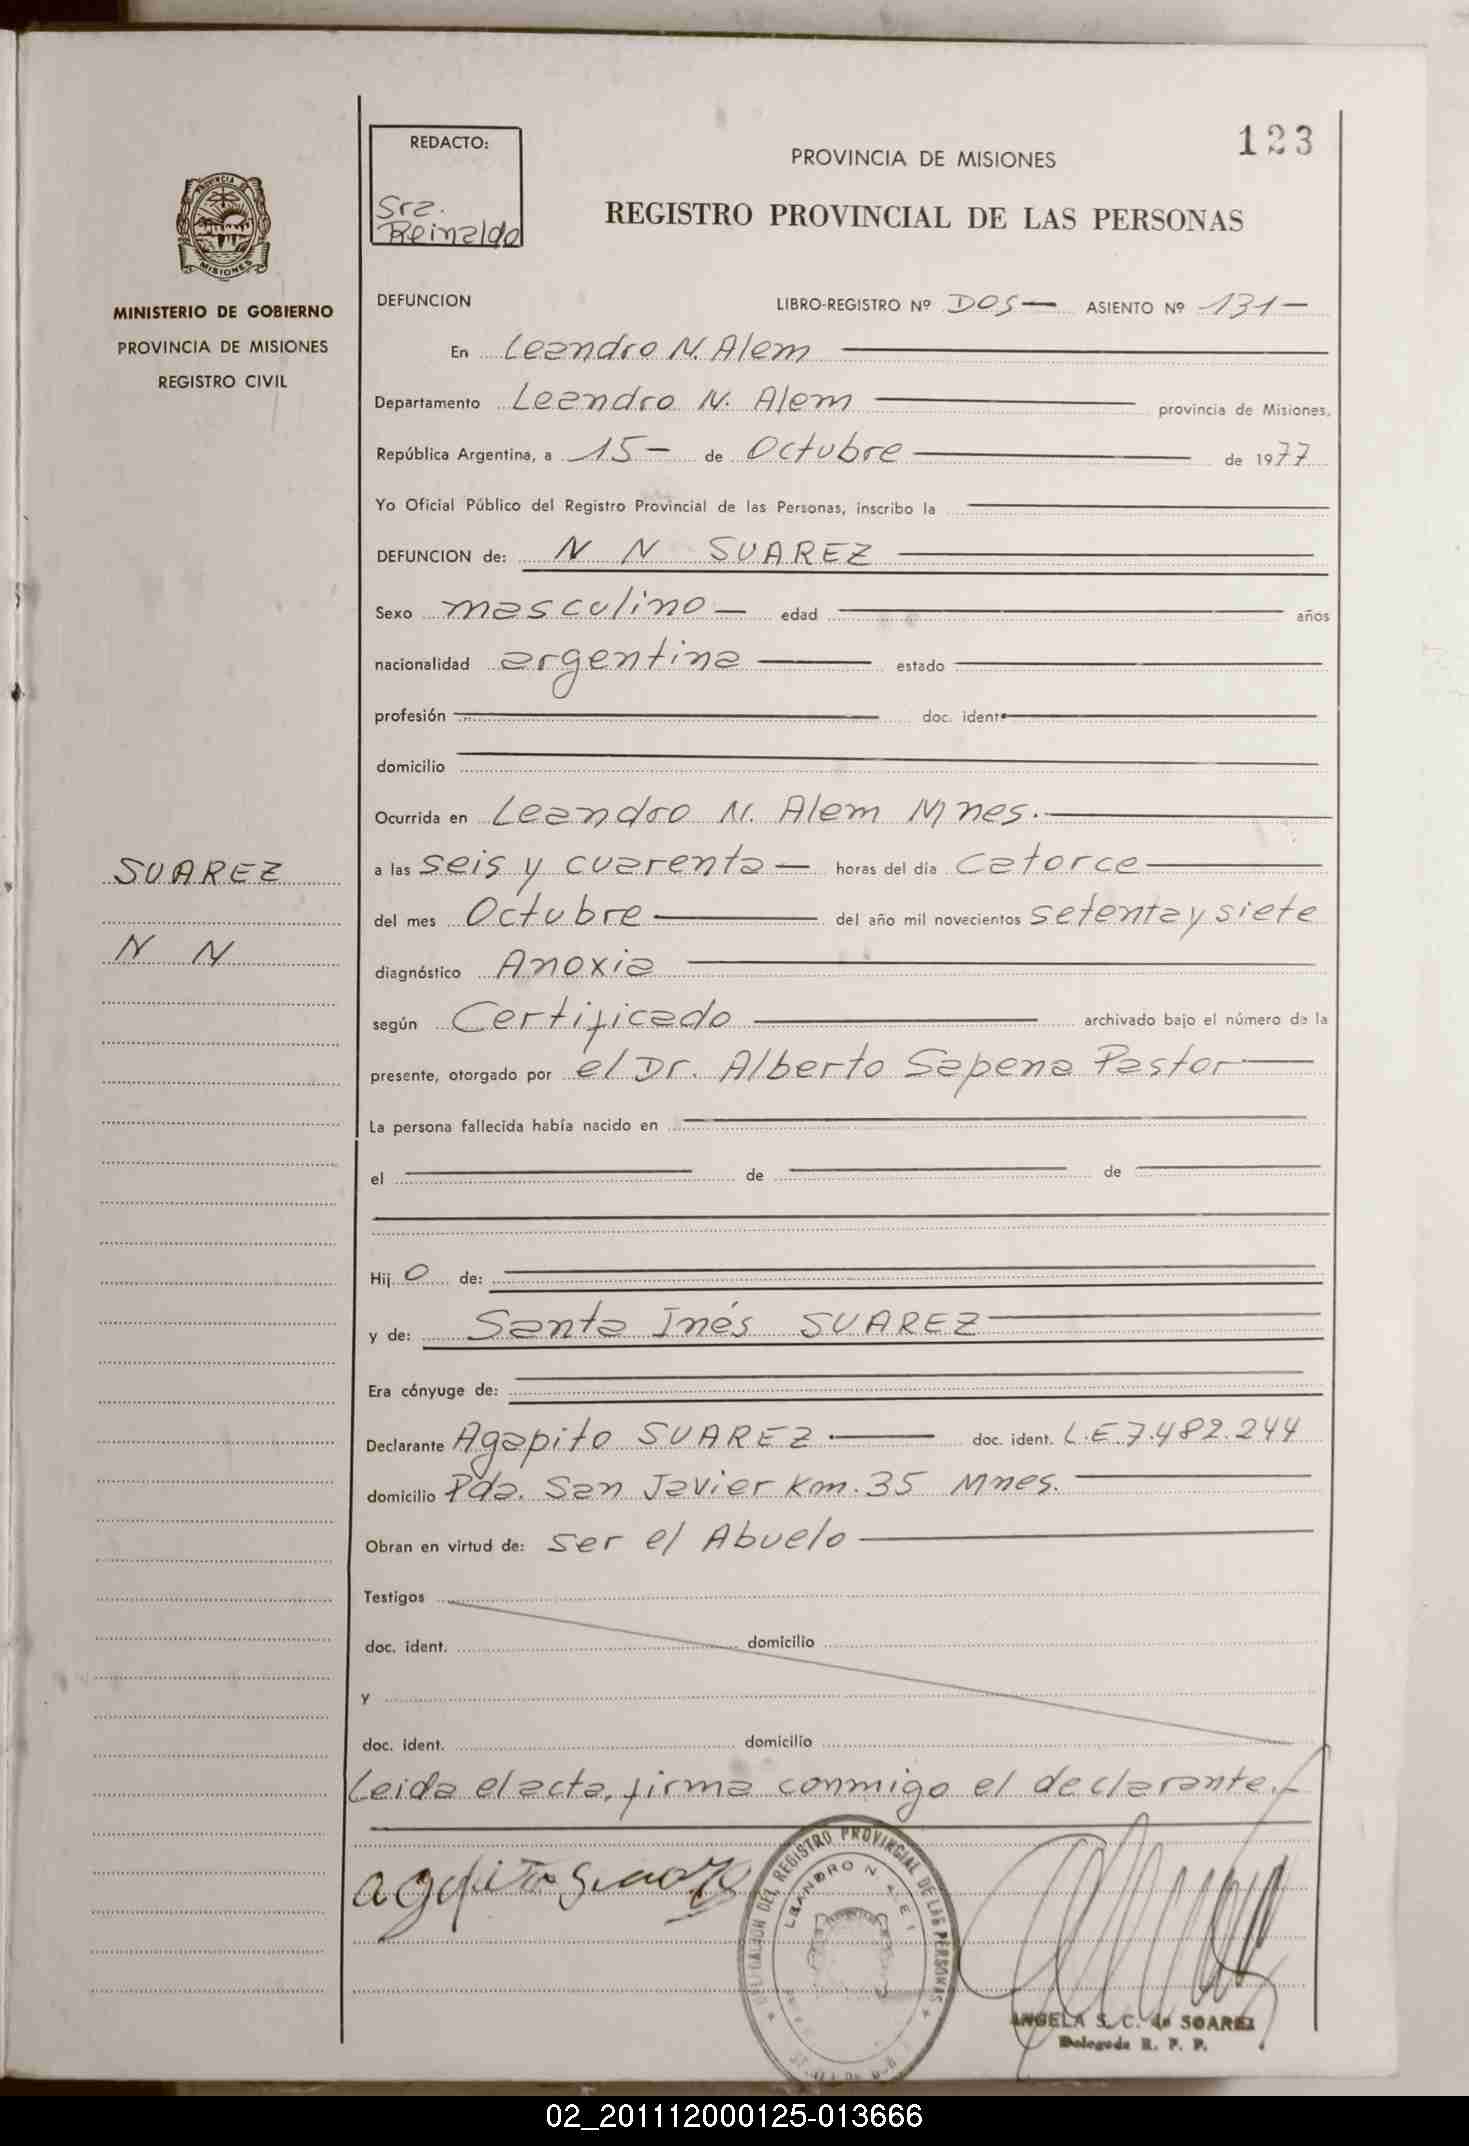 123
REDACTO:
Sra.
Reinaldo
PROVINCIA DE MISIONES
REGISTRO PROVINCIAL DE LAS PERSONAS
PROVINCIA DE
MISIONES
MINISTERIO DE GOBIERNO
PROVINCIA DE MISIONES
REGISTRO CIVIL
DEFUNCION LIBRO-REGISTRO Nº DOS— ASIENTO Nº 131—
En Leandro N. Alem
Departamento Leandro N. Alem provincia de Misiones,
República Argentina, a 15— de Octubre de 1977
Yo Oficial Público del Registro Provincial de las Personas, inscribo la
DEFUNCION de: N N SUAREZ
Sexo masculino— edad años
nacionalidad argentina estado
profesión doc. ident.
domicilio
Ocurrida en Leandro N. Alem Mnes.
SUAREZ
N N
a las seis y cuarenta— horas del día catorce
del mes Octubre del año mil novecientos setenta y siete
diagnóstico Anoxia
según Certificado archivado bajo el número de la
presente, otorgado por el Dr. Alberto Sapena Pastor
La persona fallecida había nacido en
el de de
Hij o de:
y de: Santa Inés SUAREZ
Era cónyuge de:
Declarante Agapito SUAREZ. doc. ident. L.E.7.482.244
domicilio Pda. San Javier Km. 35 Mnes.
Obran en virtud de: ser el Abuelo
Testigos
doc. ident. domicilio
y
doc. ident. domicilio
Leida el acta, firma conmigo el declarante.-
agapito Suarez
DELEGACION DEL REGISTRO PROVINCIAL DE LAS PERSONAS
LEANDRO N.
ANGELA S. C. de SOAREZ
Delegada R. P. P.
02_201112000125-013666